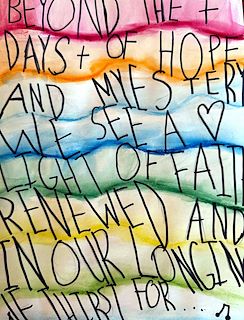 BEYOND THE +
DAYS + OF HOPE
AND MYESTERY
WE SEE A ♡
LIGHT OF FAIT
RENEWED AND
IN OUR LONGIN
WE THIRST FOR . . . ♪